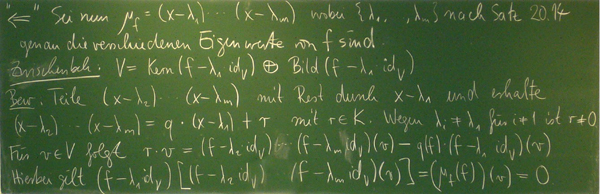 "⇐" Sei nun μ_f = (x-λ₁) ⋯ (x-λ_m) wobei {λ₁, …, λ_m} nach Satz 20.14
genau die verschiedenen Eigenwerte von f sind.
Zwischenbeh.: V = Kern(f-λ₁ id_V) ⊕ Bild(f-λ₁ id_V)
Bew.: Teile (x-λ₂) ⋯ (x-λ_m) mit Rest durch x-λ₁ und erhalte
(x-λ₂) ⋯ (x-λ_m) = q·(x-λ₁) + r mit r∈K. Wegen λ_i ≠ λ₁ für i≠1 ist r≠0.
Für v∈V folgt r·v = (f-λ₂ id_V) ⋯ (f-λ_m id_V)(v) - q(f)(f-λ₁ id_V)(v)
Hierbei gilt (f-λ₁ id_V)[(f-λ₂ id_V) (f-λ_m id_V)(v)] = (μ_f(f))(v) = 0